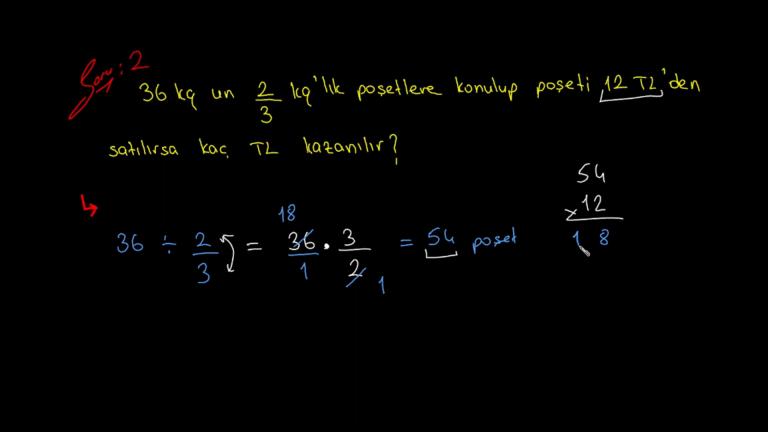 Soru: 2
36 kg un 2/3 kg'lık poşetlere konulup poşeti 12 TL'den
satılırsa kaç TL kazanılır?
36 ÷ 2/3 = 36/1 · 3/2 = 54 poşet
18
1
54
x 12
1 8